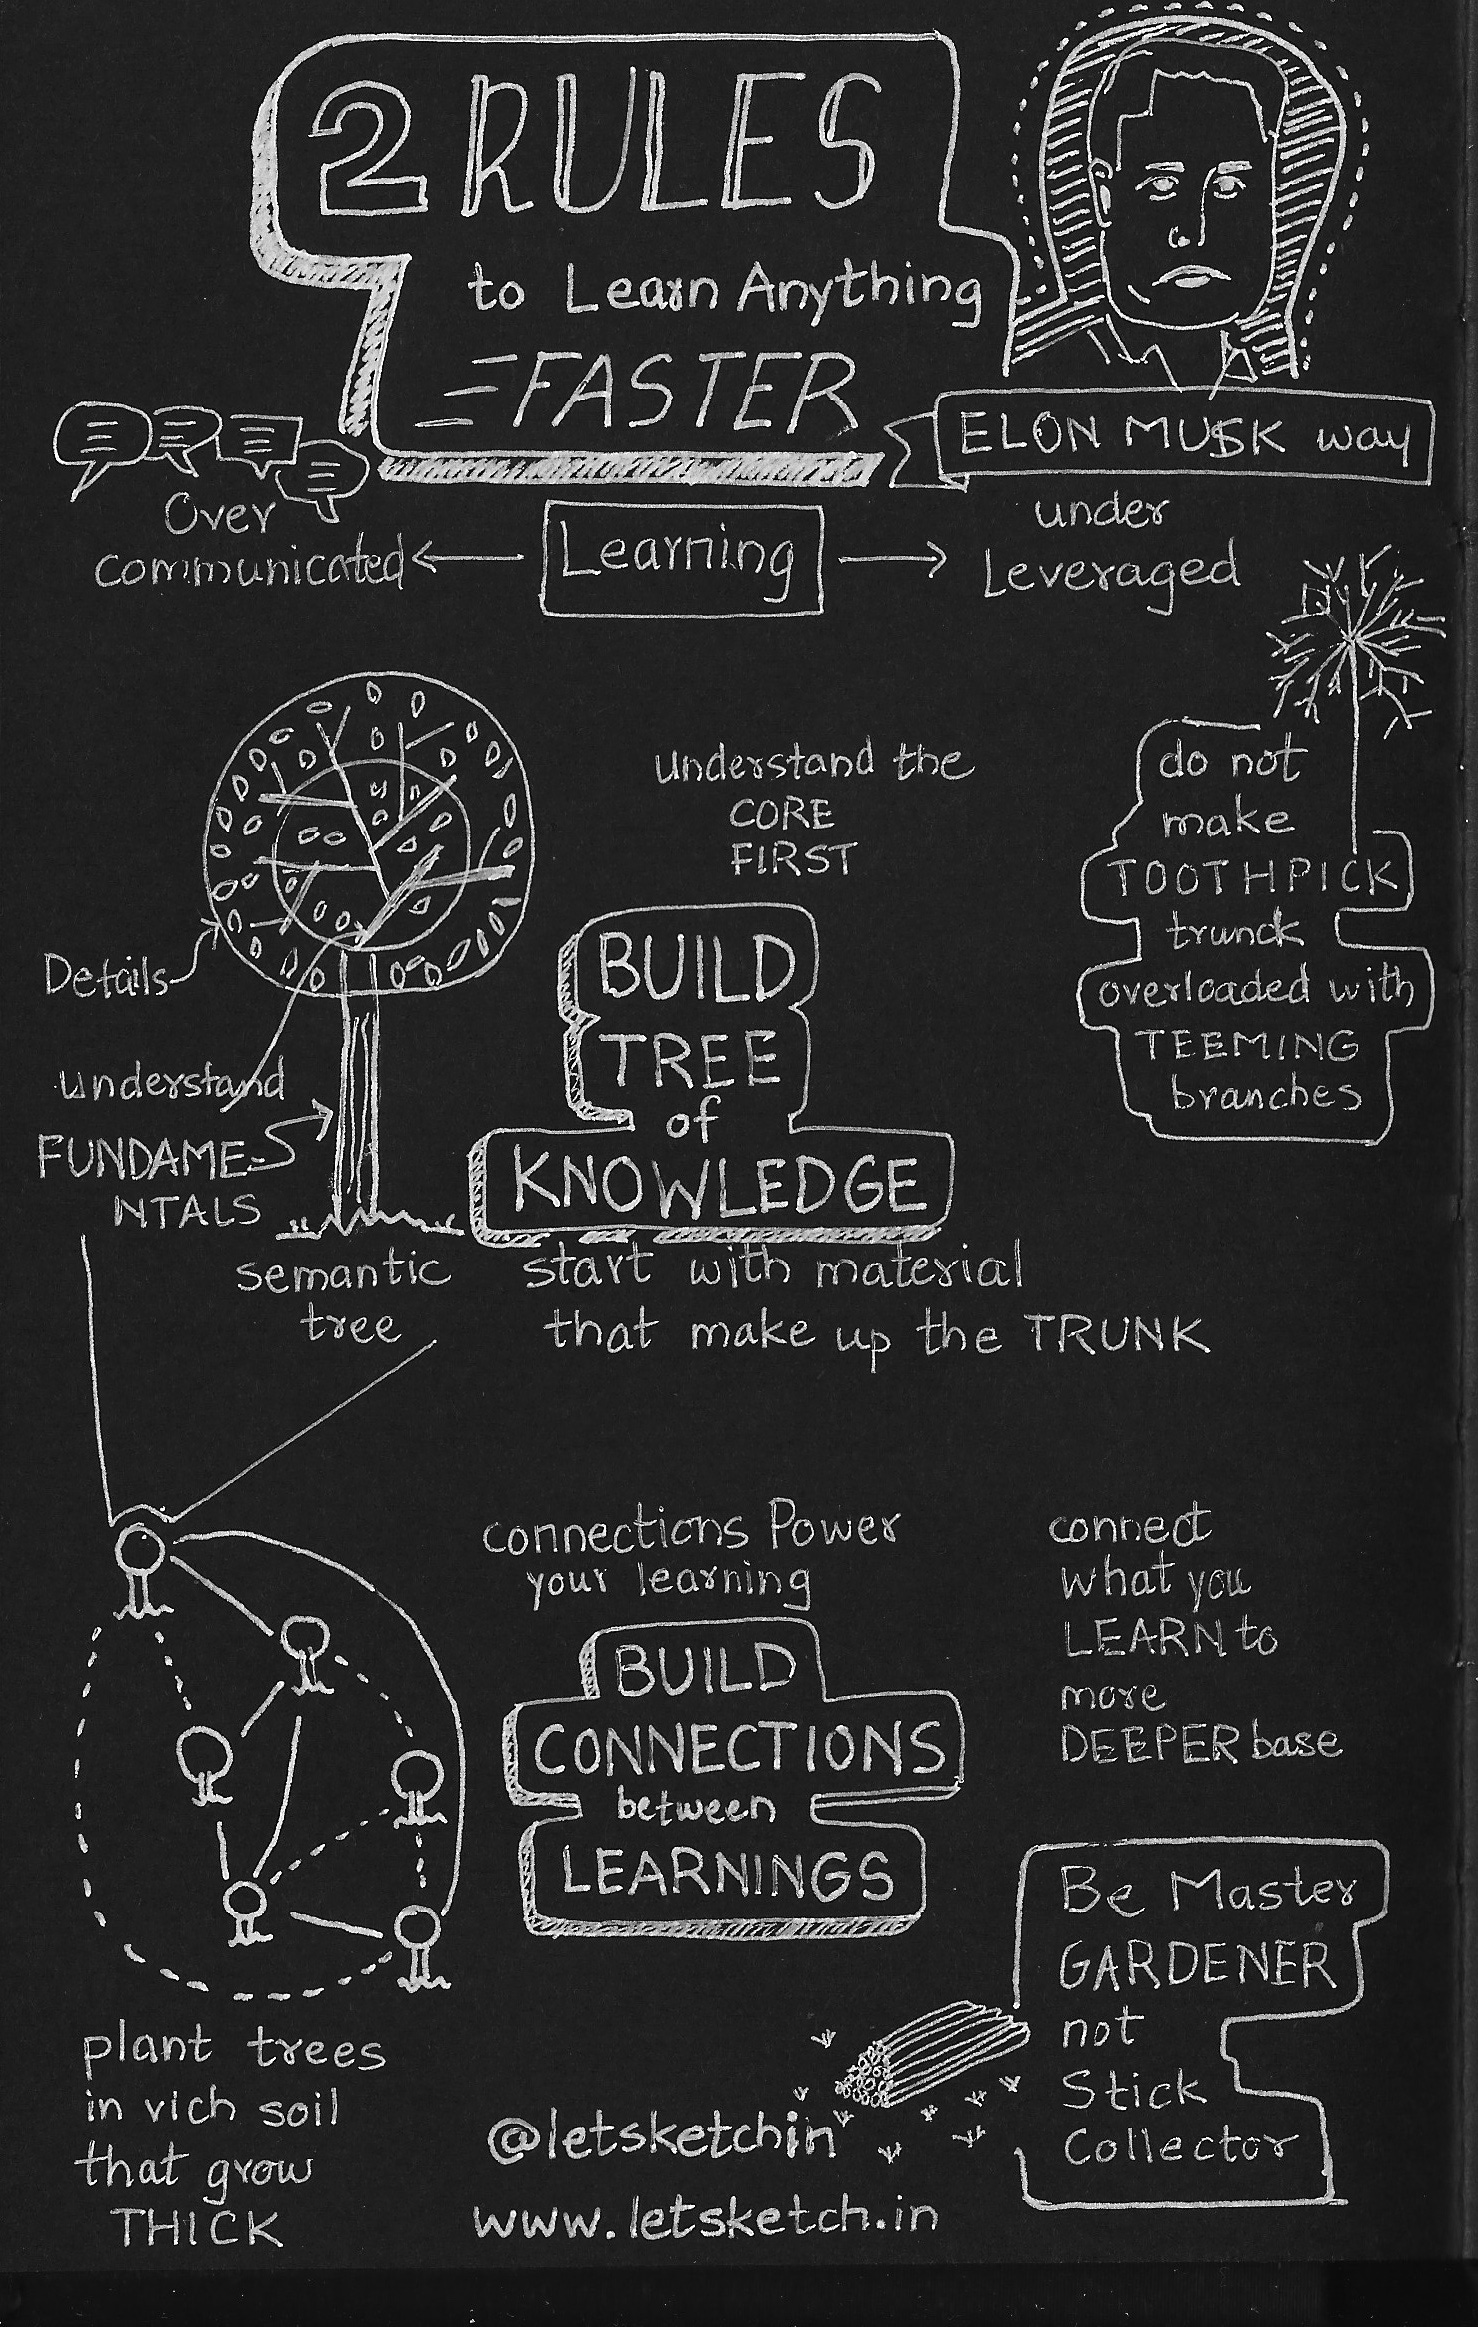 2 RULES
to Learn Anything
FASTER
ELON MUSK way
Over
communicated
Learning
under
Leveraged
understand the
CORE
FIRST
do not
make
TOOTHPICK
trunck
overloaded with
TEEMING
branches
Details
understand
FUNDAME-
NTALS
BUILD
TREE
of
KNOWLEDGE
semantic
tree
start with material
that make up the TRUNK
connections Power
your learning
connect
what you
LEARN to
more
DEEPER base
BUILD
CONNECTIONS
between
LEARNINGS
Be Master
GARDENER
not
Stick
Collector
plant trees
in rich soil
that grow
THICK
@letsketchin
www.letsketch.in